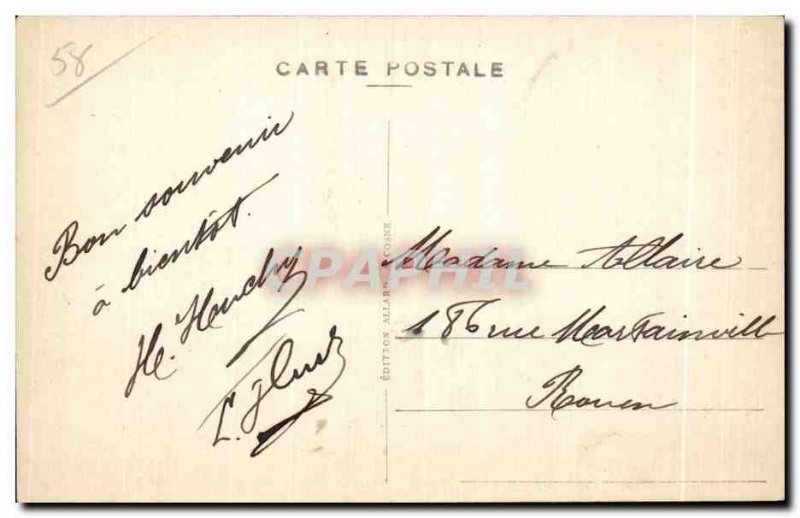 58
CARTE POSTALE
Bon souvenir
à bientôt.
H. Heuchy
L.
EDITION ALLARD COSNE
CPAPHIL
Madame Allaire
186 rue Martainvill
Rouen